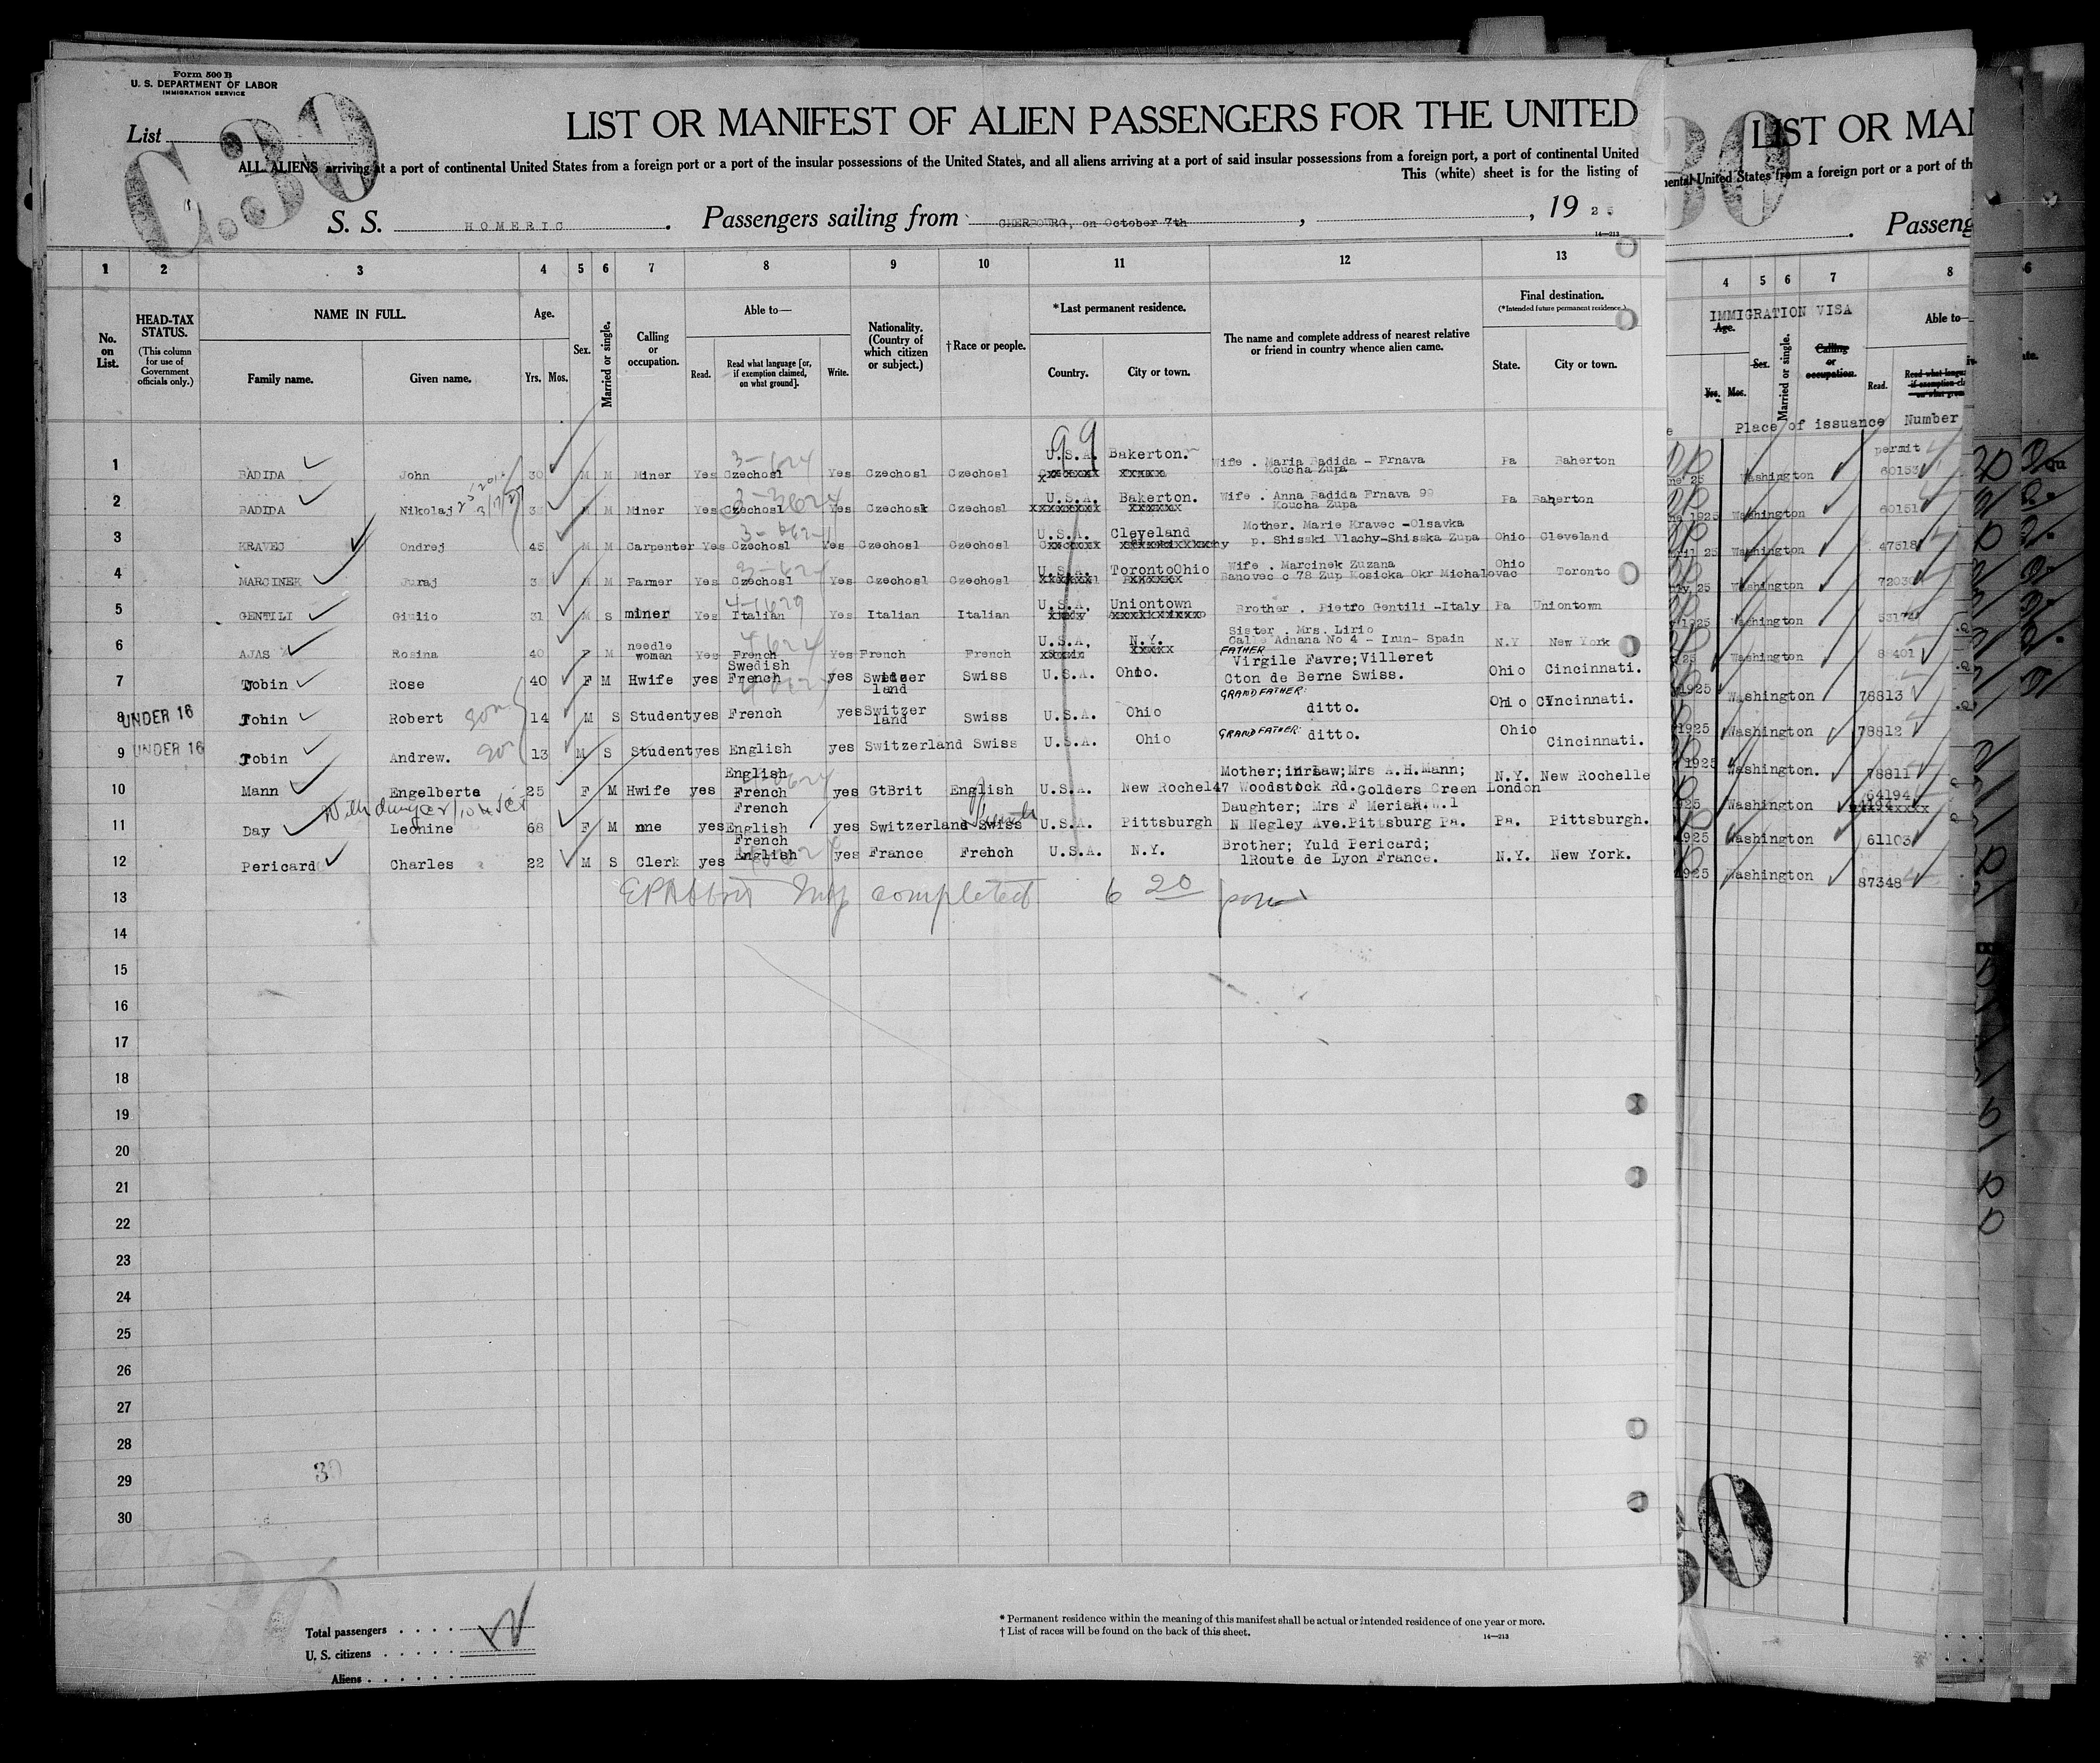 Form 500 B
U. S. DEPARTMENT OF LABOR
IMMIGRATION SERVICE
List
C.30
LIST OR MANIFEST OF ALIEN PASSENGERS FOR THE UNITED
ALL ALIENS arriving at a port of continental United States from a foreign port or a port of the insular possessions of the United States, and all aliens arriving at a port of said insular possessions from a foreign port, a port of continental United
This (white) sheet is for the listing of
S. S. HOMERIC. Passengers sailing from CHERBOURG, on October 7th, 192
14—213
1 2 3 4 5 6 7 8 9 10 11 12 13
No. on List.
HEAD-TAX STATUS.
(This column for use of Government officials only.)
NAME IN FULL.
Family name.
Given name.
Age.
Yrs. Mos.
Sex.
Married or single.
Calling or occupation.
Able to—
Read.
Read what language [or, if exemption claimed, on what ground].
Write.
Nationality. (Country of which citizen or subject.)
†Race or people.
*Last permanent residence.
Country.
City or town.
The name and complete address of nearest relative or friend in country whence alien came.
Final destination.
(*Intended future permanent residence.)
State.
City or town.
99
1 BADIDA John 30 M M Miner Yes Czechosl Yes Czechosl Czechosl U.S.A. Bakerton. Wife . Maria Badida - Frnava Koucha Zupa Pa Baherton
2 BADIDA Nikolaj M M Miner Yes Czechosl Yes Czechosl Czechosl U.S.A. Bakerton. Wife . Anna Badida Frnava 99 Koucha Zupa Pa Baherton
3 KRAVEC Ondrej 45 M M Carpenter Yes Czechosl Yes Czechosl Czechosl U.S.A. Cleveland Mother. Marie Kravec -Olsavka p. Shisski Vlachy-Shisska Zupa Ohio Cleveland
4 MARCINEK Juraj M M Farmer Yes Czechosl Yes Czechosl Czechosl U.S.A. TorontoOhio Wife . Marcinek Zuzana Banovec c 78 Zup Kosicka Okr Michalovac Ohio Toronto
5 GENTILI Giulio 31 M S miner Yes Italian Yes Italian Italian U.S.A. Uniontown Brother . Pietro Gentili -Italy Pa Uniontown
6 AJAS Rosina 40 F M needle woman Yes French Yes French French U.S.A. N.Y. Sister . Mrs. Lirio Calle Adnana No 4 - Irun- Spain N.Y New York
7 Tobin Rose 40 F M Hwife yes Swedish French yes Switzer land Swiss U.S.A. Ohio. FATHER Virgile Favre;Villeret Cton de Berne Swiss. Ohio Cincinnati.
8 UNDER 16 Tobin Robert son 14 M S Student yes French yes Switzer land Swiss U.S.A. Ohio GRANDFATHER: ditto. Ohio Cincinnati.
9 UNDER 16 Tobin Andrew. son 13 M S Student yes English yes Switzerland Swiss U.S.A. Ohio GRANDFATHER: ditto. Ohio Cincinnati.
10 Mann Engelberta 25 F M Hwife yes English French yes GtBrit English U.S.A. New Rochel Mother;inLaw;Mrs A.H.Mann; 47 Woodstock Rd.Golders Green London N.Y. New Rochelle
11 Day Leonine 68 F M nne yes French English yes Switzerland Swiss U.S.A. Pittsburgh Daughter; Mrs F Merian. N Negley Ave.Pittsburg Pa. Pa. Pittsburgh.
12 Pericard Charles 22 M S Clerk yes French English yes France French U.S.A. N.Y. Brother; Yuld Pericard; 1Route de Lyon France. N.Y. New York.
13 completed 6 20
14
15
16
17
18
19
20
21
22
23
24
25
26
27
28
29 30
30
Total passengers
U. S. citizens
Aliens
* Permanent residence within the meaning of this manifest shall be actual or intended residence of one year or more.
† List of races will be found on the back of this sheet.
14—213
LIST OR MAN
mental United States from a foreign port or a port of th
Passeng
4 5 6 7 8
IMMIGRATION VISA
Age.
Sex.
Married or single.
Calling or occupation.
Able to—
Yrs. Mos.
Read.
Place of issuance Number
Washington permit 60153
1925 Washington 60151
25 Washington 47518
25 Washington
1925 Washington
Washington
1925 Washington 78813
1925 Washington 78812
1925 Washington. 78811
925 Washington 64194
1925 Washington 61103
1925 Washington 87348